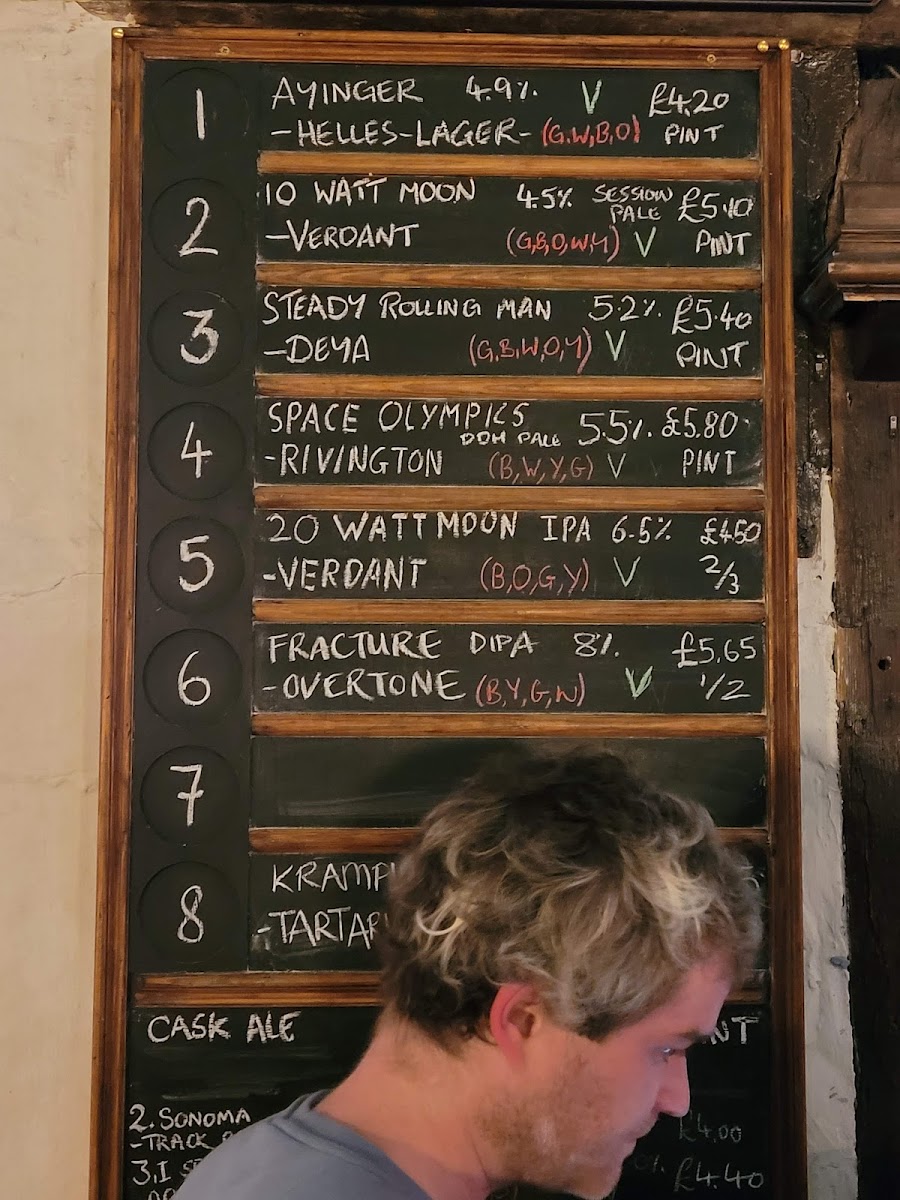 1 AYINGER 4.9% V £4.20
-HELLES-LAGER- (G,W,B,O) PINT
2 10 WATT MOON 4.5% SESSION PALE £5.10
-VERDANT (G,B,O,W,Y) V PINT
3 STEADY ROLLING MAN 5.2% £5.40
-DEYA (G,B,W,O,Y) V PINT
4 SPACE OLYMPICS DDH PALE 5.5% £5.80
-RIVINGTON (B,W,Y,G) V PINT
5 20 WATT MOON IPA 6.5% £4.50
-VERDANT (B,O,G,Y) V 2/3
6 FRACTURE DIPA 8% £5.65
-OVERTONE (B,Y,G,W) V 1/2
7
8 KRAMP
-TARTAR
CASK ALE NT
2. SONOMA
-TRACK £4.00
3. I £4.40